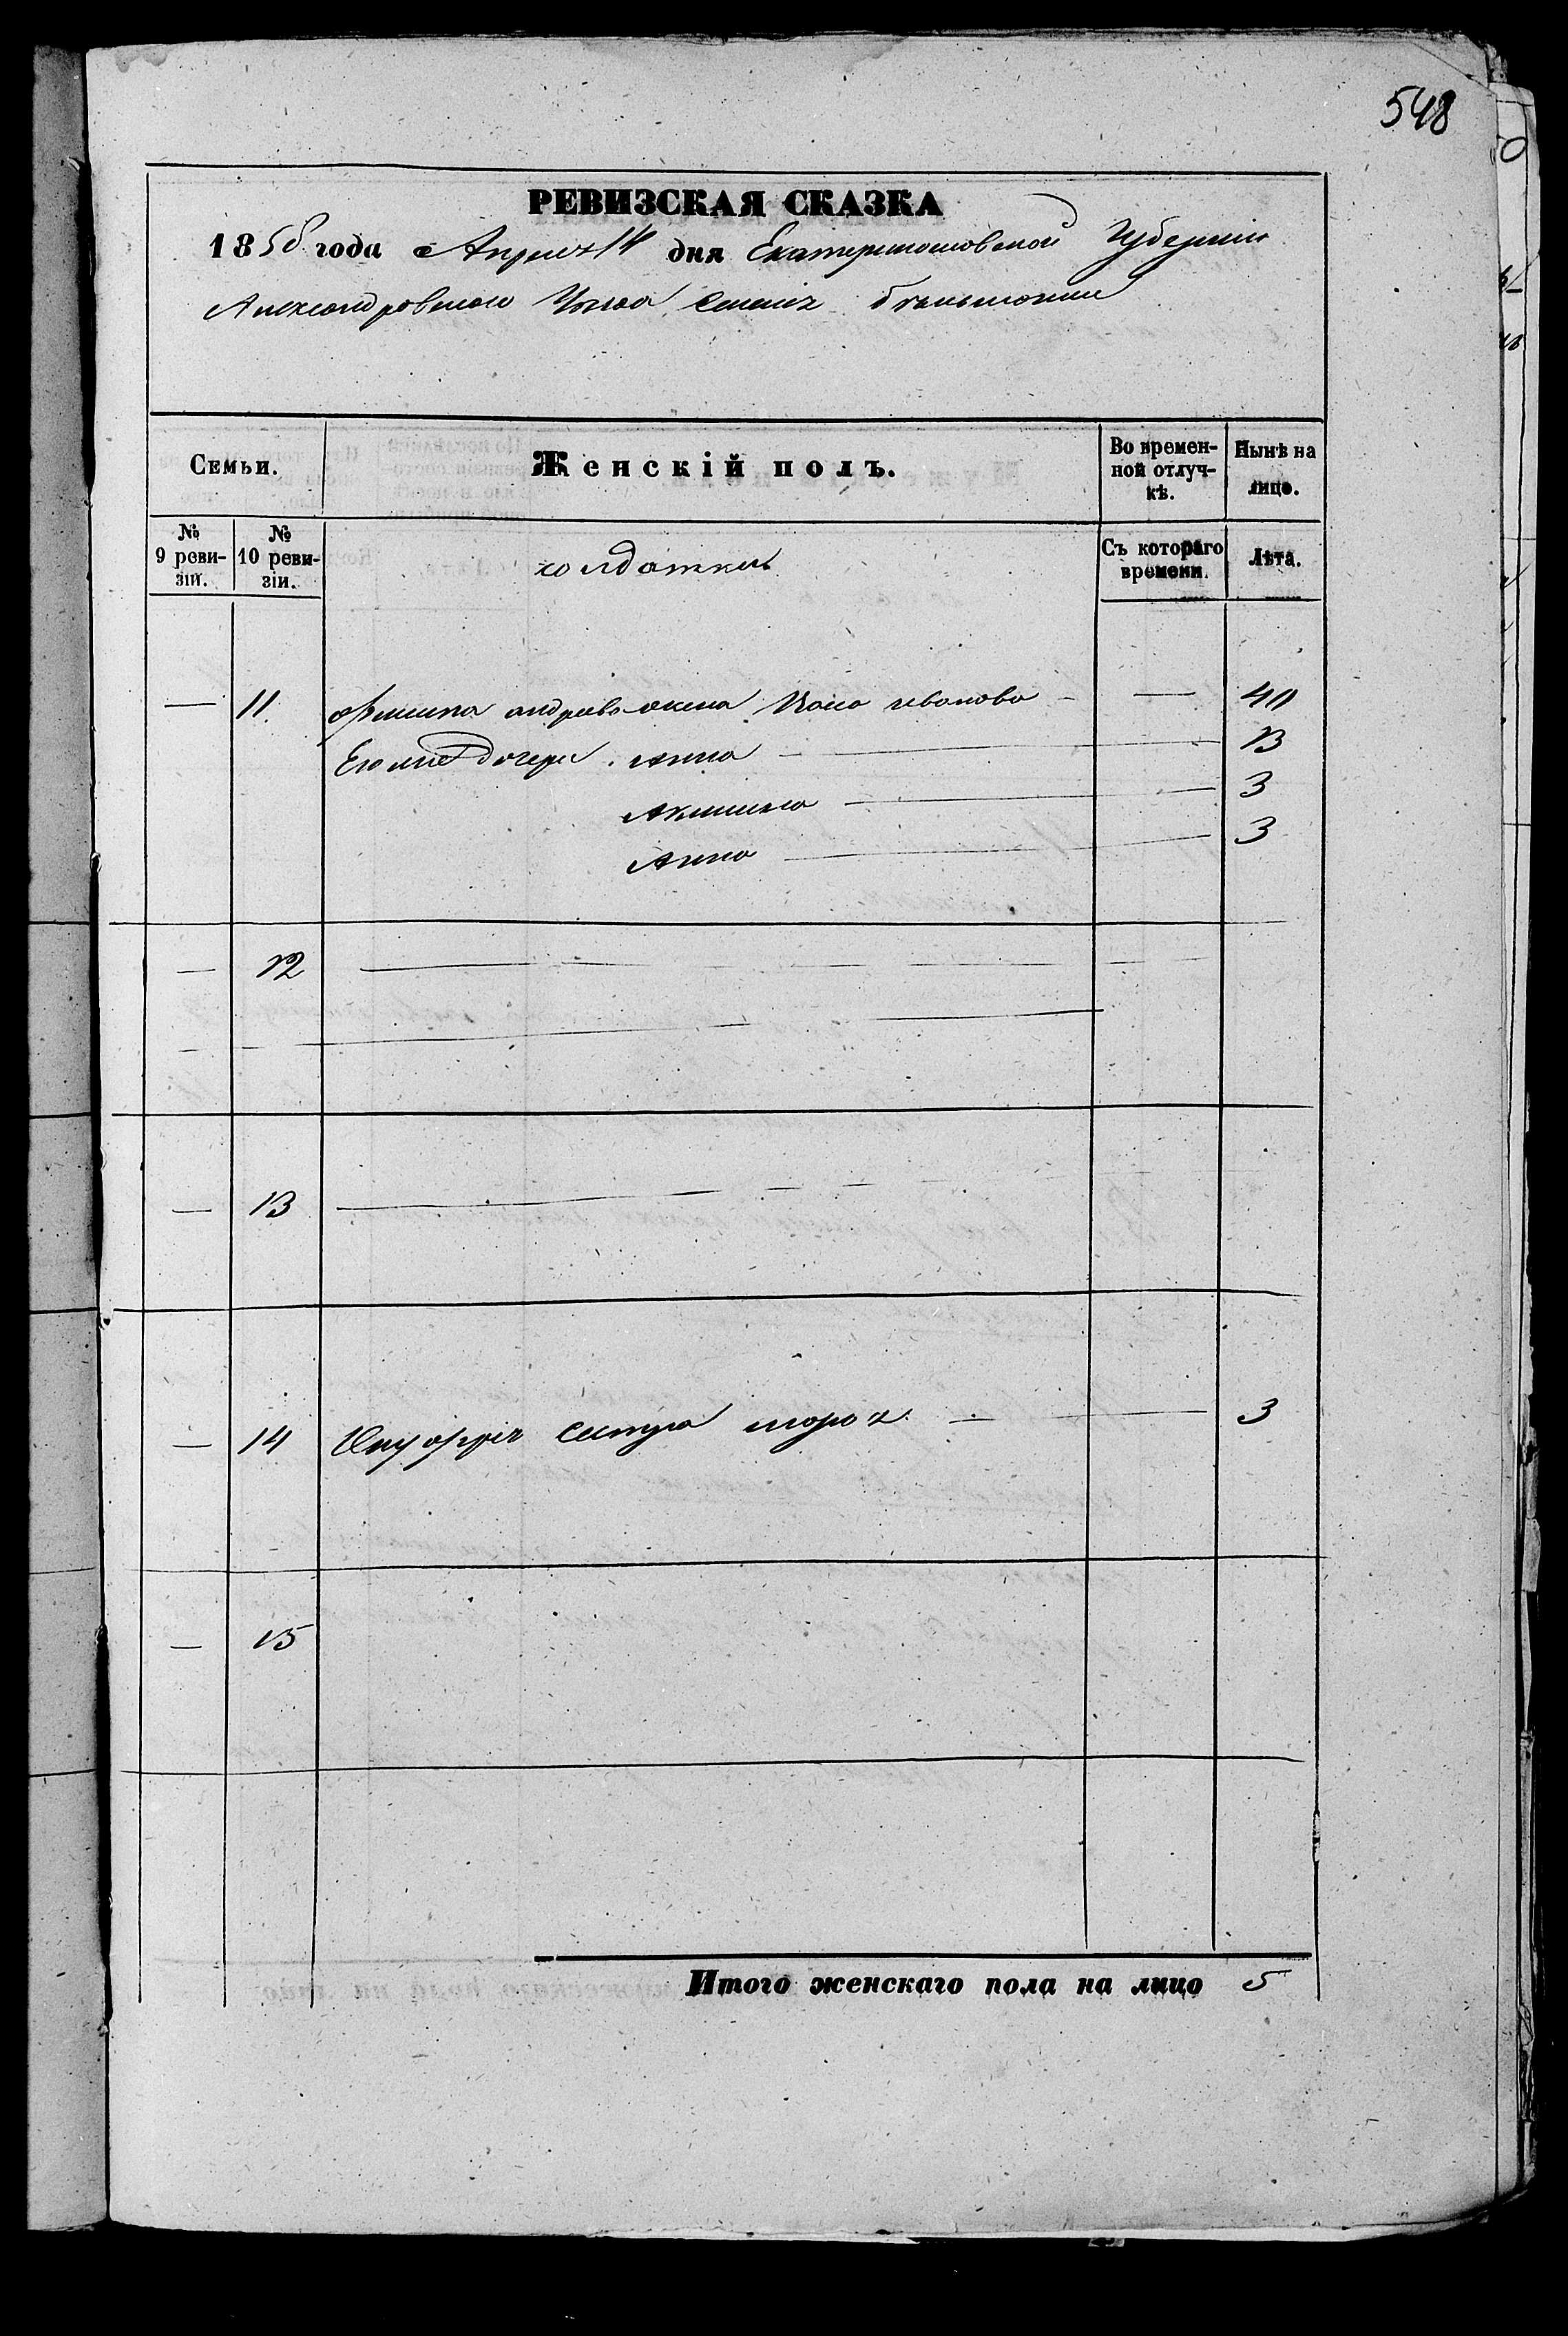 548
РЕВИЗСКАЯ СКАЗКА
1858 года Апреля 14 дня Екатеринославской Губернии
Александровского Уезда Селения
Семьи.
Женскій полъ.
Во времен-
ной отлуч-
кѣ.
Нынѣ на
лицо.
№
9 реви-
зіи.
№
10 реви-
зіи.
солдатки
Съ котораго
времени.
Лѣта.
— 11 жена Ивана Иванова — — 40
Его дочери. Анна — 13
Акилина — 3
Анна — 3
— 12 —
— 13 —
— 14 сестра — 3
— 15
Итого женскаго пола на лицо 5